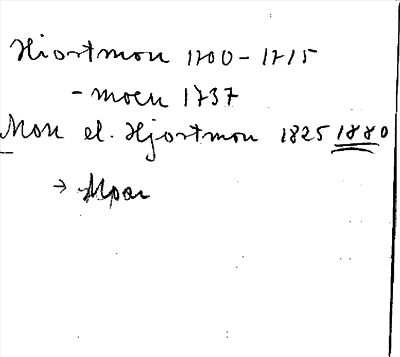 Hiortmon 1700-1715
-moen 1737
Mon el. Hjortmon 1825 1880
→